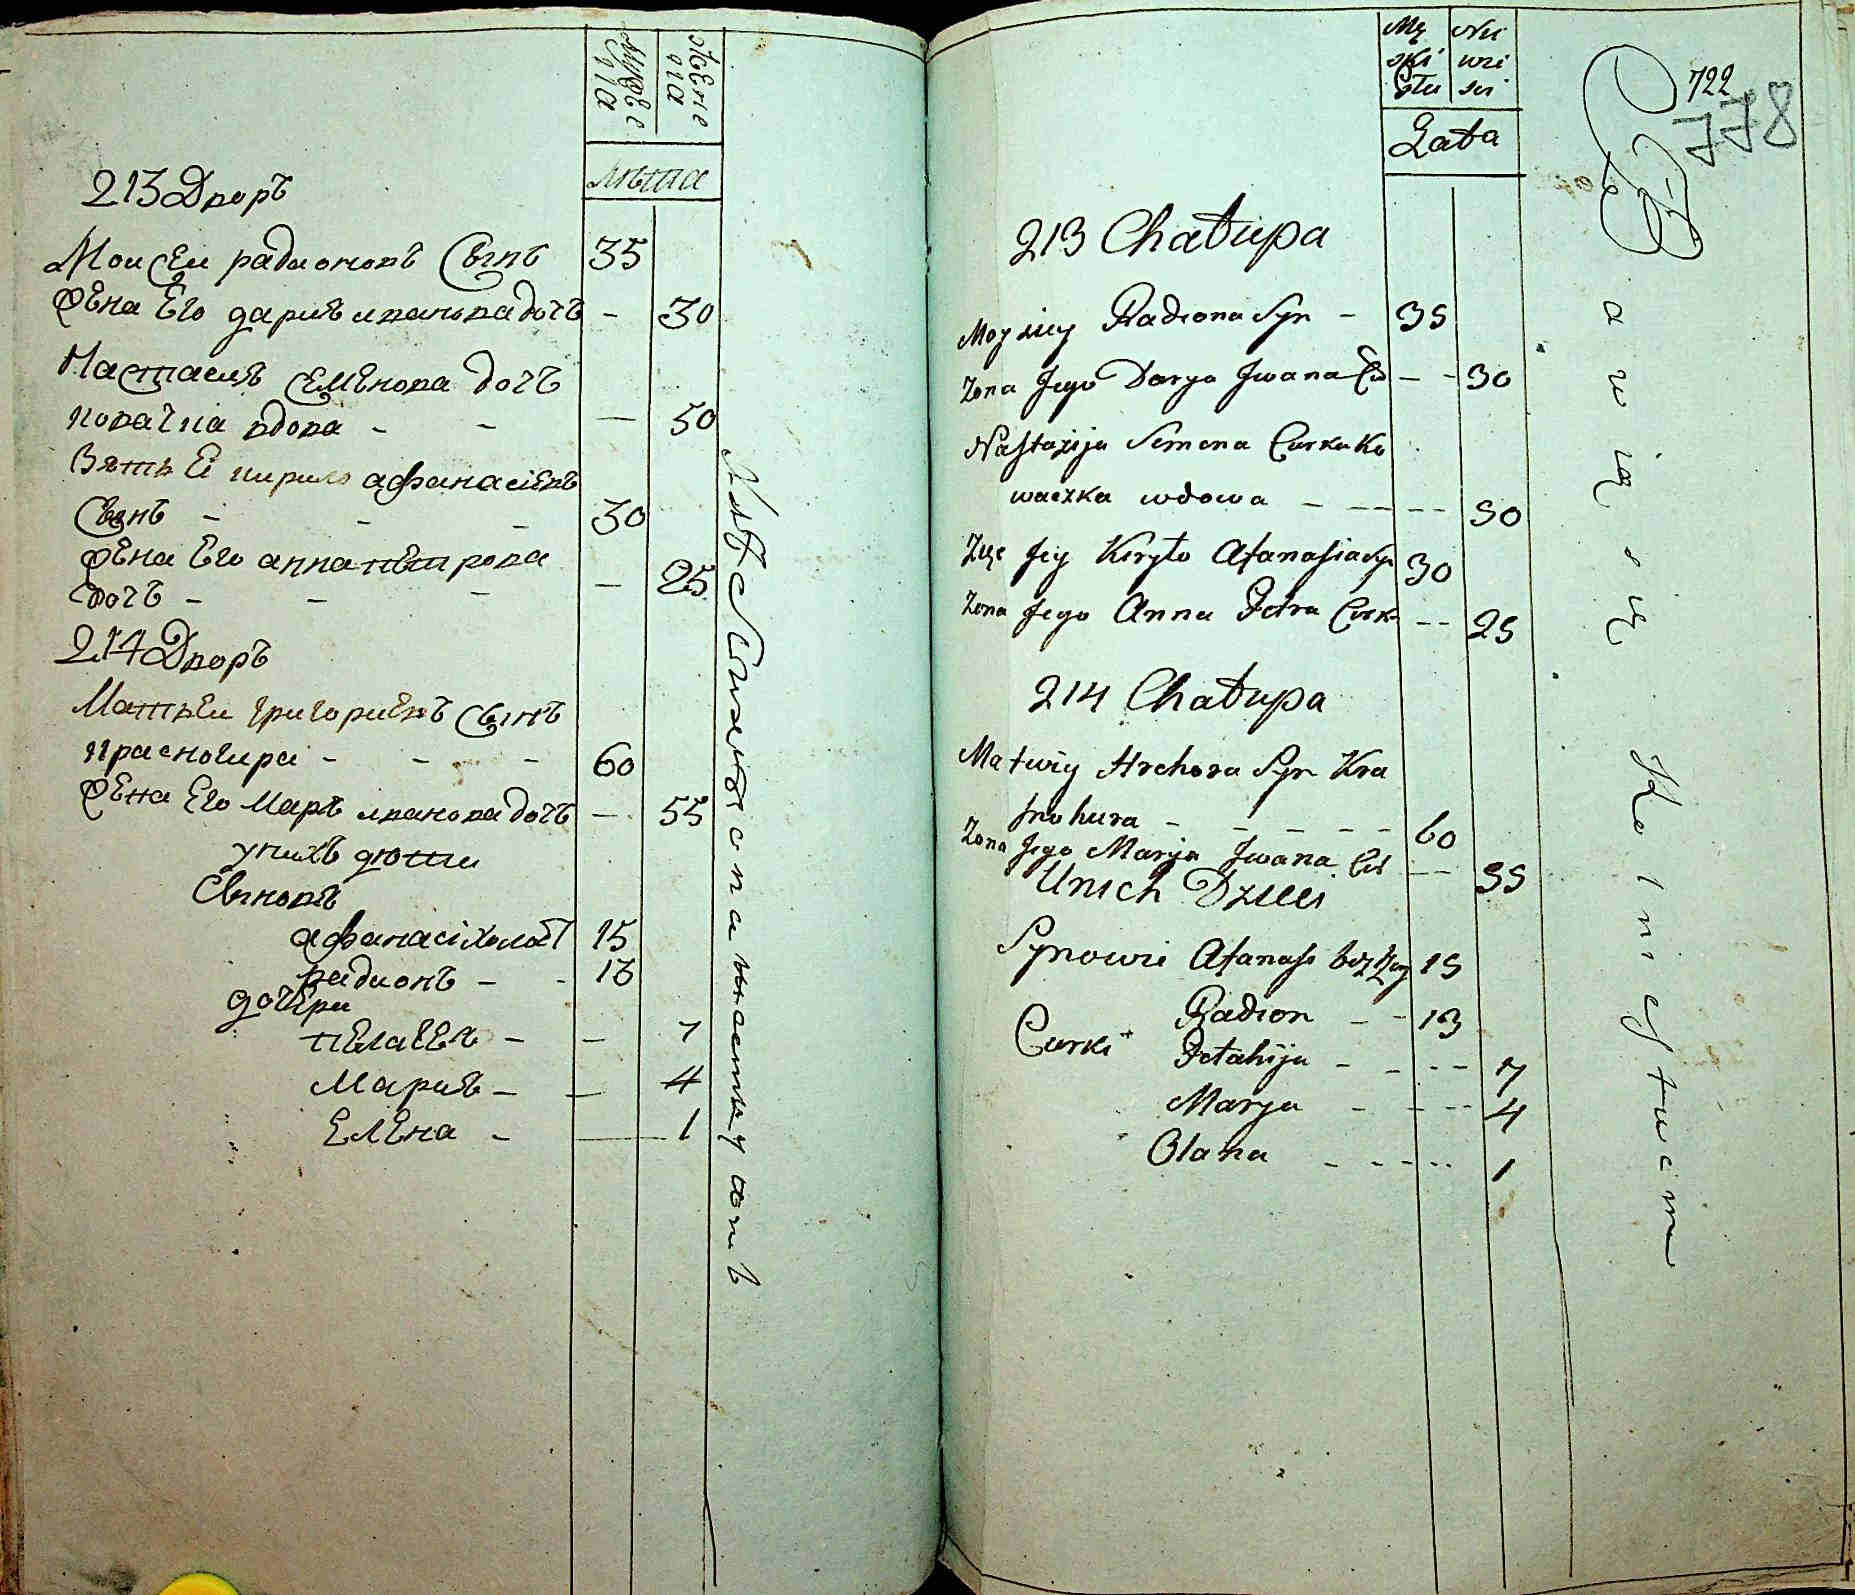 Мужеска
Женска
Лѣта
213 Дворъ
Моисеи радионовъ Сынъ 35
Жена Его дариѣ иванова дочъ - 30
Настасиѣ Семенова дочъ
ковачка вдова - - — 50
Зять Еи кирило афанасіевъ
Сынъ - - - 30
Жена Его анна петрова
дочъ - - - — 25
214 Дворъ
Матвеи григориевъ Сынъ
Красногира - - - 60
Жена Его Маръ иванова дочъ — 55
у нихъ дети
Сыновъ
афанасі холост 15
радионъ - - 13
дочери
пелагеѣ - — 7
Мариѣ - — 4
Елена - — 1
Mę Nu
ski wie
Stu sci
Lata
722
778
213 Chałupa
Moyziey Radiona Syn - 35
Zona Jego Darya Jwana Co - - 30
Nastazija Semena Curka Ko
waczka wdowa - - - - 50
Zięc Jey Kiryło Atanasia Syn 30
Zona Jego Anna Petra Curk - - 25
214 Chałupa
Matwiy Hrehora Syn Kra
snohura - - - - - 60
Zona Jego Marya Jwana Cór - - 55
U nich Dzieci
Synowie Atanasi bezżeny 15
Radion - - 13
Curki Petahija - - - - 7
Marya - - - - 4
Olana - - - - 1